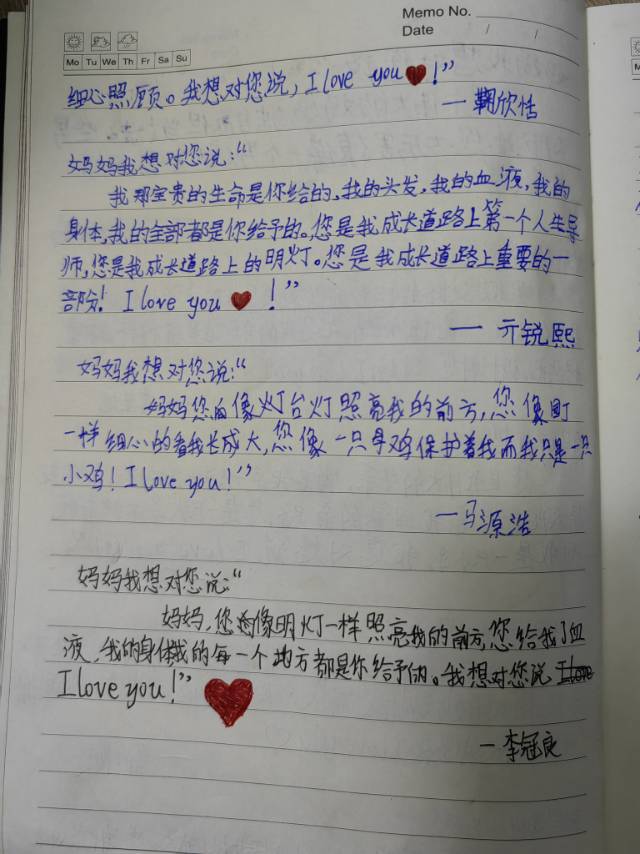 Memo No.
Date / /
Mo Tu We Th Fr Sa Su
细心照顾。我想对您说，I love you❤！”
— 鞠欣恬
妈妈我想对您说：“
我那宝贵的生命是你给的，我的头发，我的血液，我的
身体，我的全部都是你给予的。您是我成长道路上第一个人生导
师，您是我成长道路上的明灯。您是我成长道路上重要的一
部分！I love you❤！”
— 亓锐熙
妈妈我想对您说：“
妈妈您像灯台灯照亮我的前方，您像
一样细心的看我长成大，您像一只母鸡保护着我而我只是一只
小鸡！I love you！”
—马源浩
妈妈我想对您说：“
妈妈，您像明灯一样照亮我的前方，您给我了血
液，我的身体我的每一个地方都是你给予的。我想对您说 I love
I love you！”❤
—李冠良